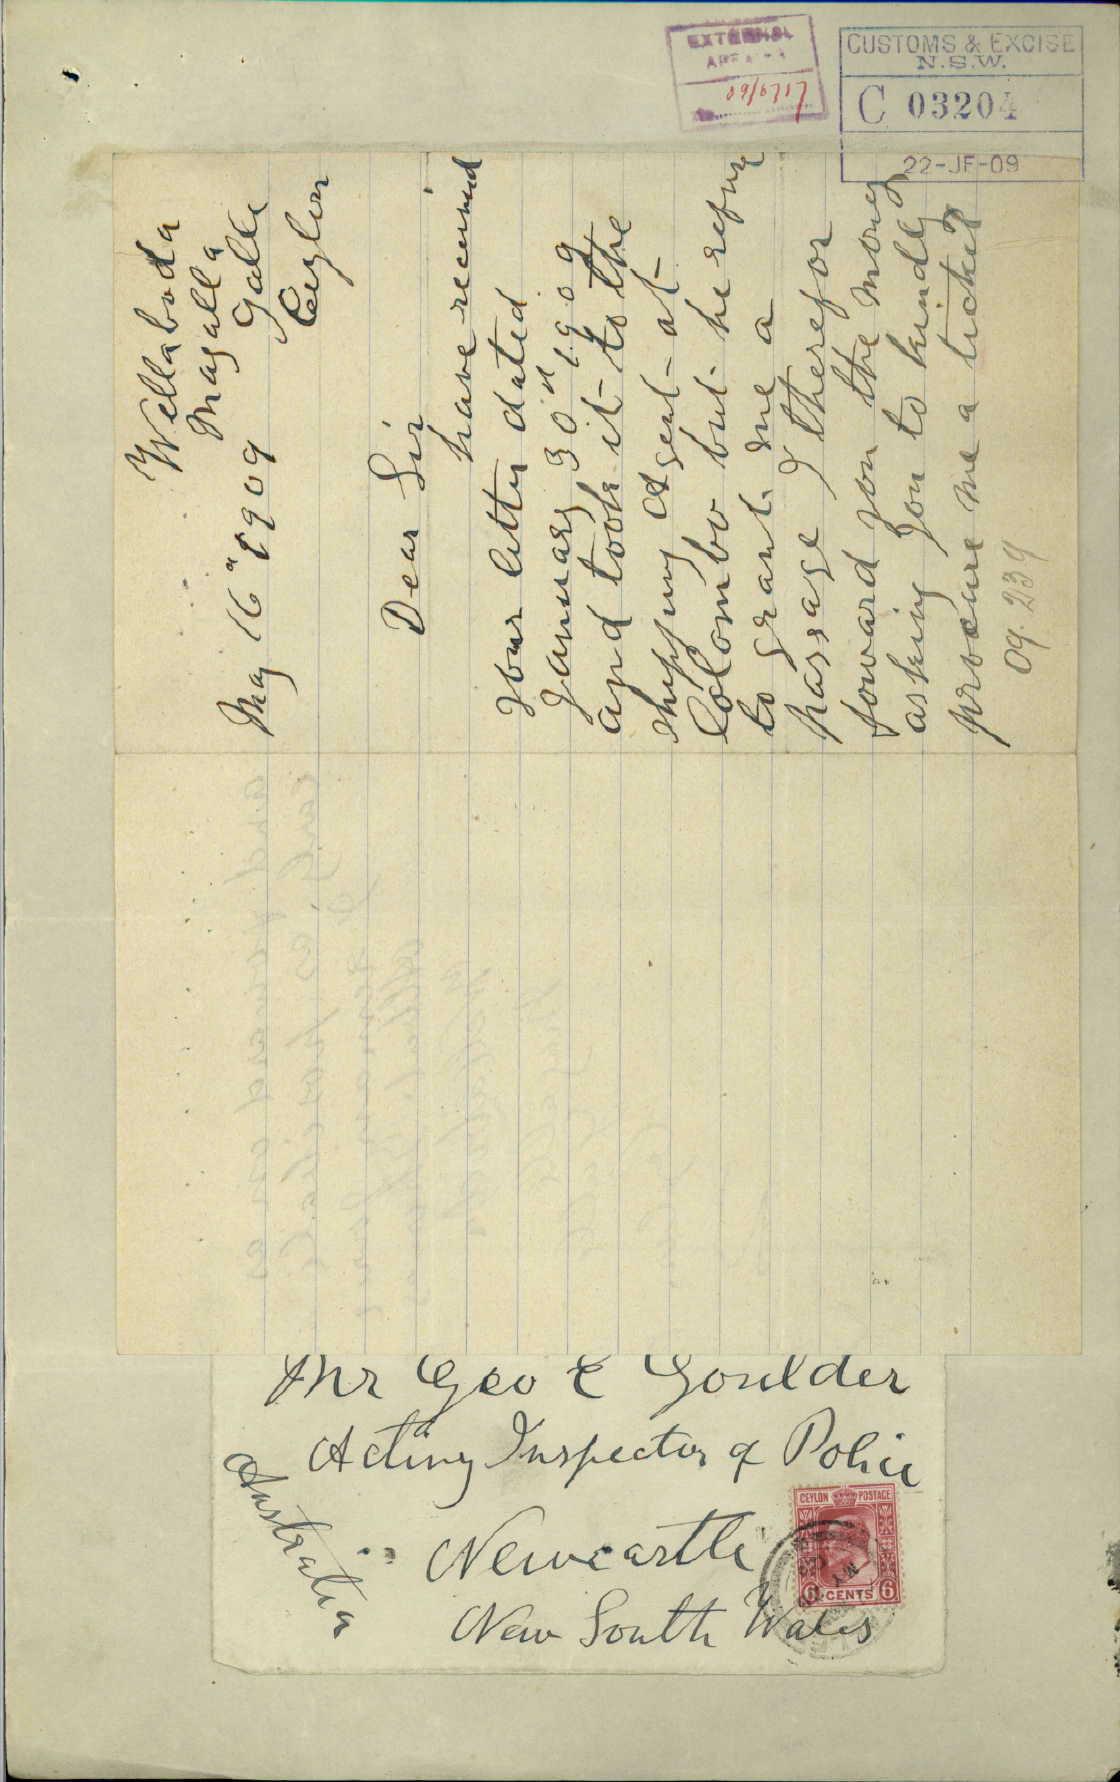 EXTERNAL
CUSTOMS & EXCISE
N.S.W.
C 03204
22-JE-09
Wellaboda
Magalla
Galle
Ceylon
May 16" 1909
Dear Sir
have received
your letter dated
January 30" 1909
and took it to the
shipping Agent at
Colombo but he refuse
to grant me a
passage I therefor
foward you the money
asking you to kindly
procure me a ticket
09.239
Mr Geo E Goulder
Acting Inspector of Police
Newcastle
New South Wales
Australia
CEYLON POSTAGE
6 CENTS 6
MY